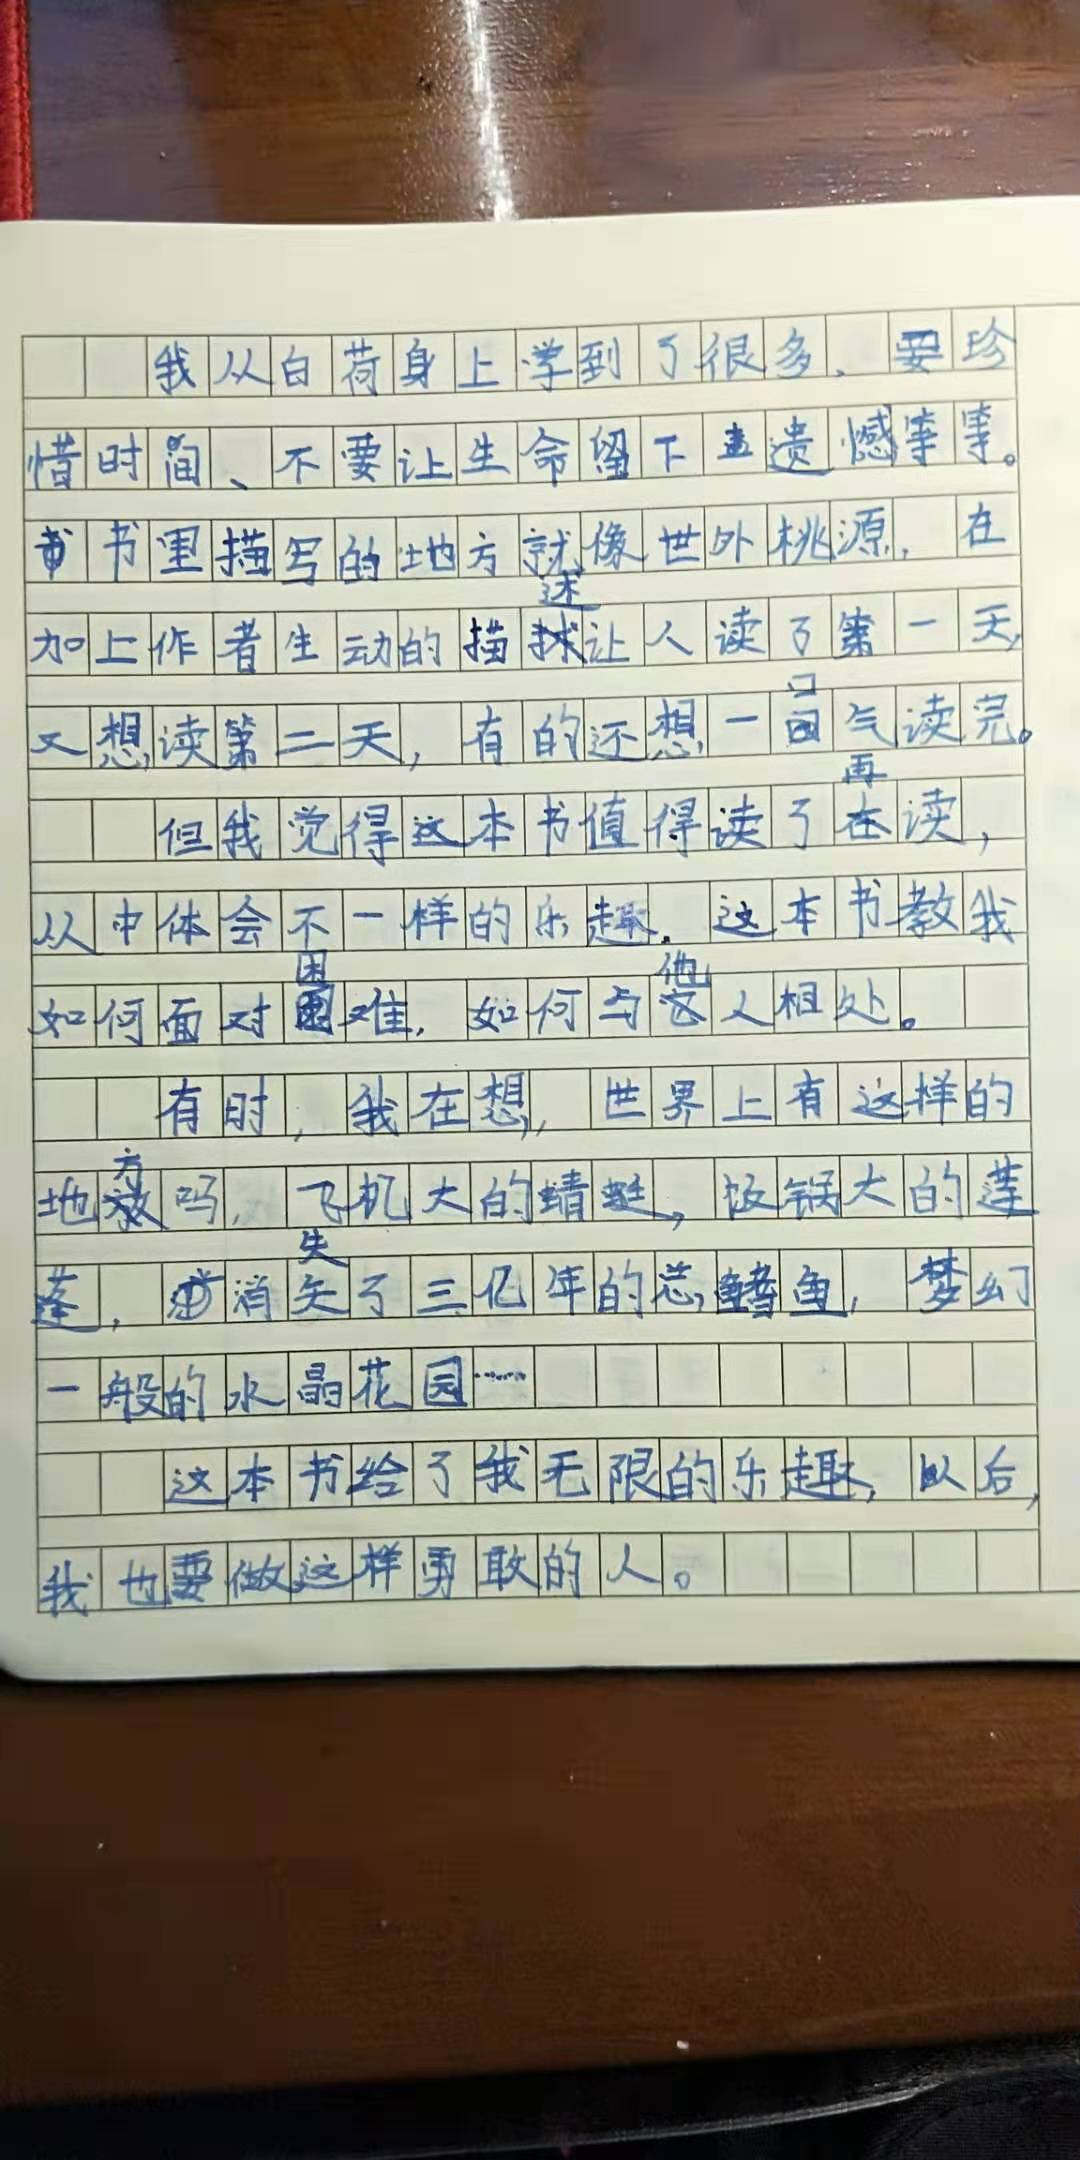 我从白荷身上学到了很多，要珍
惜时间、不要让生命留下遗憾等等。
书里描写的地方就像世外桃源，在
加上作者生动的描述让人读了第一天，
又想读第二天，有的还想一口气读完。
但我觉得这本书值得读了再读，
从中体会不一样的乐趣。这本书教我
如何面对困难，如何与他人相处。
有时，我在想，世界上有这样的
地方吗，飞机大的蜻蜓，饭锅大的莲
蓬，消失了三亿年的总鳍鱼，梦幻
一般的水晶花园……
这本书给了我无限的乐趣，以后，
我也要做这样勇敢的人。